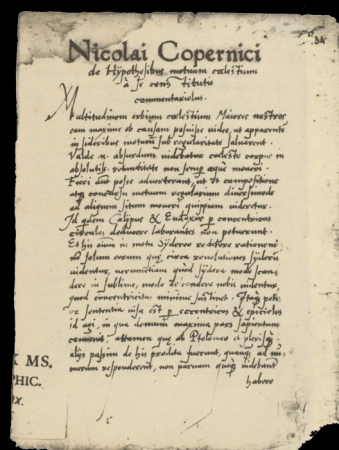 34
Nicolai Copernici
de Hypothesibus motuum cœlestium
à se constitutis
commentariolus.
Multitudinem orbium cœlestium Maiores nostros
eam maxime ob causam posuisse video, ut apparentem
in sideribus motum sub regularitate salvarent.
Valde .n. absurdum videbatur cœleste corpus in
absolutiss. rotunditate non semper æque moveri.
Fieri aut posse adverterant, ut et compositione
atq concursu motuum regularium diversimode
ad aliquem situm moveri quippiam videretur.
Id quidem Calippus & Eudoxus p concentricos
circulos deducere laborantes non potuerunt.
Et his omnium in motu sydereo reddere rationem
nō solum eorum quæ circa revolutiones syderum
videntur, verumetiam quod sydera modo scan-
dere in sublime, modo descendere nobis videntur,
quod concentricitas minime sustinet. Itaq potior
sententia visa est p eccentricos & epiciclos
id agi, in qua demum maxima pars sapientum
convenit, attamen quæ ab Ptolomeo et plerisq
alijs passim de his prodita fuerunt, quanq ad nu-
merum responderent, non parvam quoq videbant
habere
K MS.
PHIC.
IX.